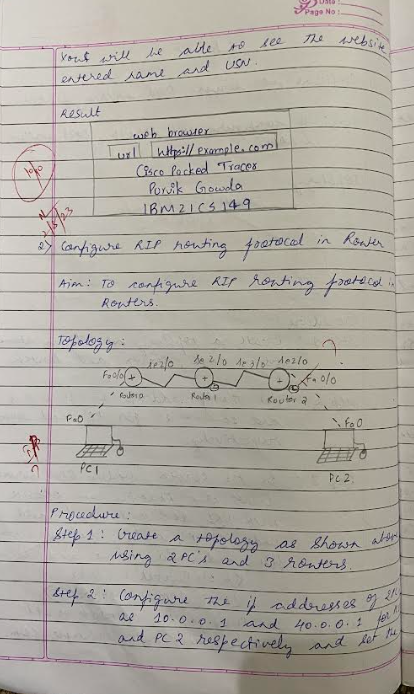 Date:
Page No:
Youll will be able to see the website
entered name and USN.
Result
web browser
url https://example.com
Cisco Packed Tracer
Purvik Gowda
1BM21CS149
10/10
2) Configure RIP routing protocol in Router
Aim: To configure RIP routing protocol in
Routers.
Topology:
se2/0 se2/0 se3/0 se2/0
Fa0/0 Fa0/0
Router0 Router1 Router2
Fa0 Fa0
PC1 PC2
Procedure:
Step 1: Create a topology as shown above
using 2PC's and 3 routers.
Step 2: Configure the ip addresses of 2PC
as 10.0.0.1 and 40.0.0.1 for
and PC2 respectively and let the